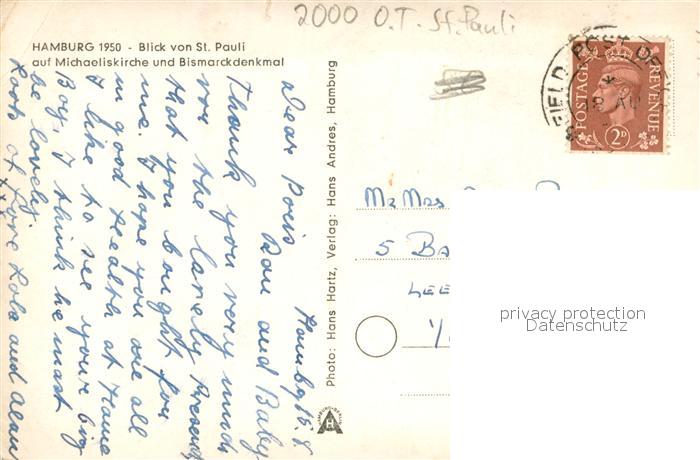 2000 O.T. St. Pauli
HAMBURG 1950 - Blick von St. Pauli
auf Michaeliskirche und Bismarckdenkmal
Hambg 15. 8
Dear Doris
Don and Baby
Thank you very much
vor the lovely Presend
that you bought for
me. I hope you are all
in good health at Home
I like to see your big
Boy, I think he must
be lovely.
Lots of Love Lola and
xxx
Photo: Hans Hartz, Verlag: Hans Andres, Hamburg
HAMBURG-BERLIN
HA
FIELD POST OFFICE
18 AU
POSTAGE REVENUE
2D
Mr Mrs
5 Ba
Lee
1/
privacy protection
Datenschutz